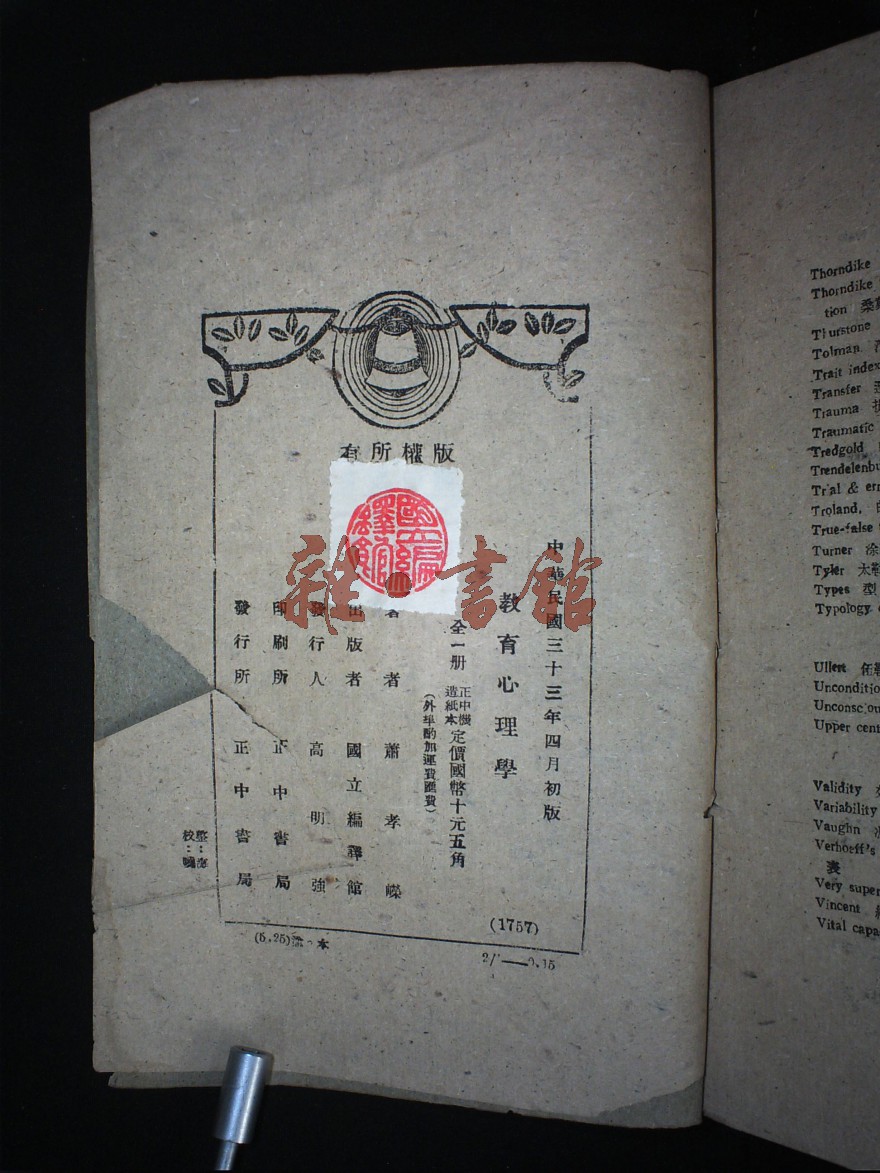 版權所有
國立編譯館
雜·書館
中華民國三十三年四月初版
教育心理學
全一册 正中機造紙本 定價國幣十元五角
(外埠酌加運費匯費)
著者 蕭孝嶸
出版者 國立編譯館
發行人 高明強
印刷所 正中書局
發行所 正中書局
(1757)
Thorndike
Thorndike
tion 桑
Thurstone
Tolman
Trait index
Transfer
Trauma
Traumatic
Tredgold
Trial & err
Troland,
True-false
Turner 涂
Tyler 太
Types 型
Typology
Ullert
Unconditio
Unconsciou
Upper cent
Validity
Variability
Vaughn
Verhoeff's
表
Very super
Vincent
Vital capa